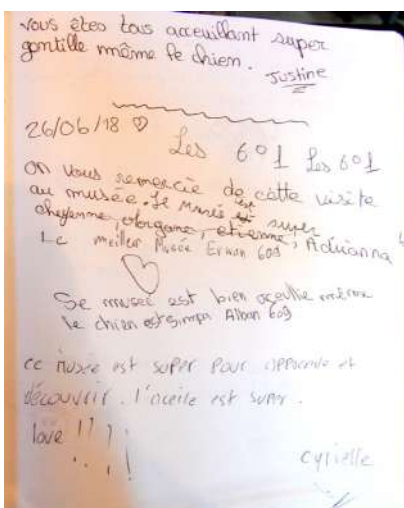 vous êtes tous acceuillant super
gentille même le chien.
Justine
26/06/18 ♡
Les 601 Les 601
On vous remercie de cette visite
au musée. Le Musée est super
cheyenne, etienne, Adrianna
Le meiller Musée Erwan 609
Se musée est bien aceullie même
le chien est simpa Alban 609
ce musée est super pour apprendre et
découvrir. l'aceile est super.
love !!!
cyrielle